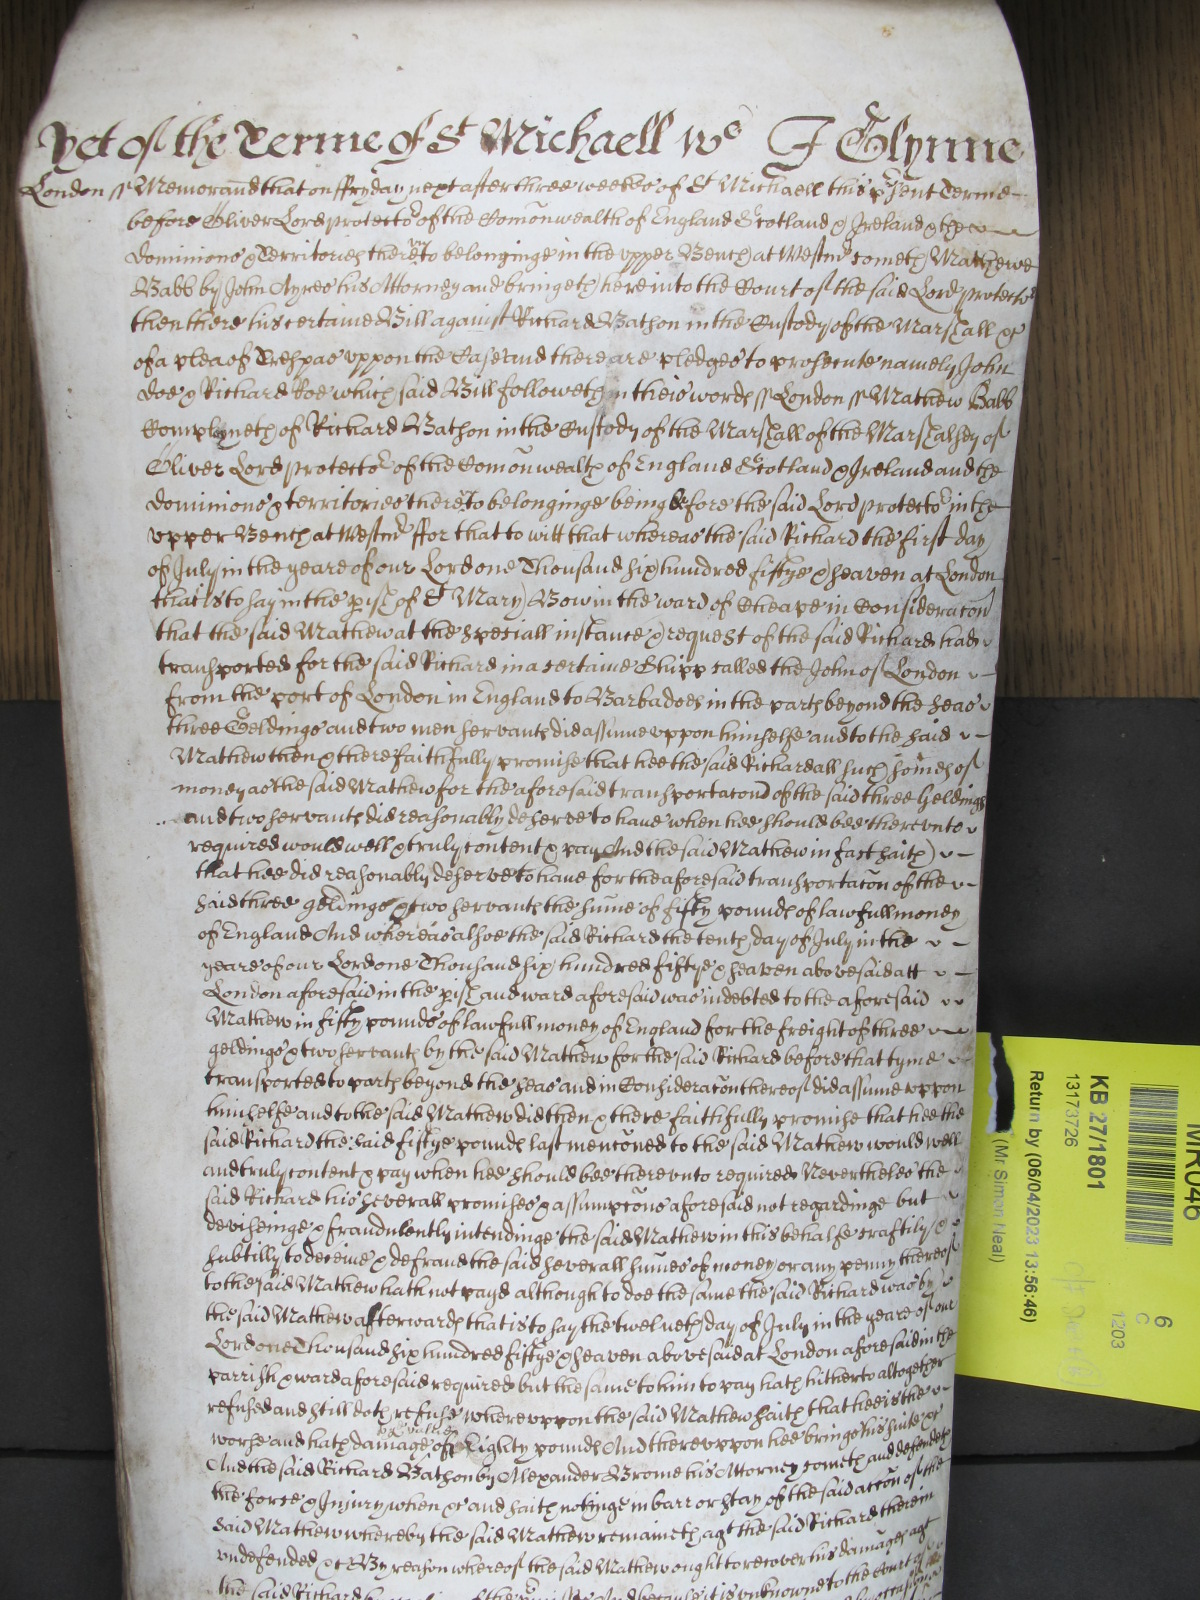 Yet of the Terme of St Michaell Ws J Glynne
London ss Memorand that on ffryday next after three weekes of St Michaell this p'sent Terme
before Oliver Lord protector of the Comonwealth of England Scotland & Ireland & the
dominions & Territories thereunto belonginge in the upper Bench at Westmr cometh Mathewe
Babb by John Ayres his Attorney and bringeth here into the Court of the said Lord protector
then there his certaine Bill against Richard Bathon in the Custody of the Marshall &c
of a plea of Trespas uppon the Case and there are pledges to prosecute namely John
doe & Richard Roe which said Bill followeth in theis words ss London ss Mathew Babb
Complayneth of Richard Bathon in the Custody of the Marshall of the Marshalsey of
Oliver Lord protector of the Comonwealth of England Scotland & Ireland and the
dominions & territories thereto belonginge being before the said Lord protector in the
upper Bench at Westmr ffor that to witt that whereas the said Richard the first day
of July in the yeare of our Lord one Thousand six hundred fiftye & seaven at London
that is to say in the pish of St Mary Bow in the ward of Cheape in Consideracon
that the said Mathew at the speciall instance & request of the said Richard had
transported for the said Richard in a certaine Shipp called the John of London
from the port of London in England to Barbadoes in the parts beyond the seas
three Geldings and two men servants did assume uppon himselfe and to the said
Mathew then & there faithfully promise that hee the said Richard all such somes of
money as the said Mathew for the aforesaid transportacon of the said three Geldings
and two servants did reasonably deserve to have when hee should bee thereunto
required would well & truly content & pay And the said Mathew in fact saith
that hee did reasonably deserve to have for the aforesaid transportacon of the
said three geldings & two servants the sume of fifty pounds of lawfull money
of England And whereas alsoe the said Richard the tenth day of July in the
yeare of our Lord one Thousand six hundred fiftye & seaven abovesaid att
London aforesaid in the pish and ward aforesaid was indebted to the aforesaid
Mathew in fifty pounds of lawfull money of England for the freight of three
geldings & two servants by the said Mathew for the said Richard before that tyme
transported to parts beyond the seas and in Consideracon thereof did assume uppon
himselfe and to the said Mathew did then & there faithfully promise that hee the
said Richard the said fiftye pounds last mencioned to the said Mathew would well
and truly content & pay when hee should bee thereunto required Neverthelesse the
said Richard his severall promises & assumpcons aforesaid not regardinge but
deviseinge & fraudulently intendinge the said Mathew in this behalfe craftily &
subtilly to deceive & defraud the said severall sumes of money or any penny thereof
to the said Mathew hath not payd although to doe the same the said Richard was by
the said Mathew afterwards that is to say the twelveth day of July in the yeare of our
Lord one Thousand six hundred fiftye & seaven abovesaid at London aforesaid in the
parrish & ward aforesaid required but the same to him to pay hath hitherto altogether
refused and still doth refuse whereuppon the said Mathew saith that hee is the
worse and hath damage to the value of Eighty pounds And thereuppon hee bringe his suite &c
And the said Richard Bathon by Alexander Brome his Attorney cometh and defendeth
the force & Injury when &c and saith nothinge in barr or stay of the said accon of the
said Mathew whereby the said Mathew remaineth agt the said Richard therein
undefended &c By reason whereof the said Mathew ought to recover his damages agt
the said Richard And because it is unknowne to the Court
MR046
6
C
1203
KB 27/1801
13173726
Return by (06/04/2023 13:56:46)
(Mr Simon Neal)